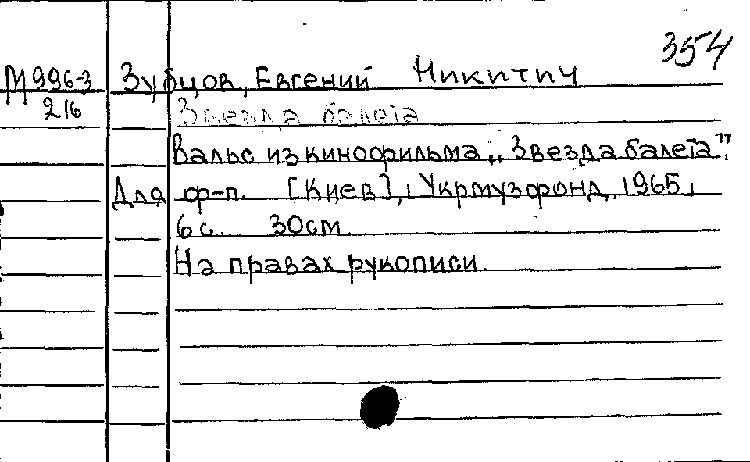 354
М 996-3
216
Зубцов, Евгений Никитич
Звезда балета
Вальс из кинофильма „Звезда балета".
Для ф-п. [Киев], Укрмузфонд, 1965,
6 с. 30 см.
На правах рукописи.